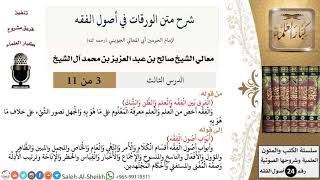 شرح متن الورقات في أصول الفقه
لإمام الحرمين أبي المعالي الجويني (رحمه الله)
معالي الشيخ صالح بن عبد العزيز بن محمد آل الشيخ
الدرس الثالث
3 من 11
من قوله:
(الفرق بين الفقه والعلم والظن والشك)
والفقه أخص من العلم والعلم معرفة المعلوم على ما هو به والجهل تصور الشيء على خلاف ما
هو به
إلى قوله:
(وأبواب أصول الفقه)
وأبواب أصول الفقه أقسام الكلام والأمر والنهي والعام والخاص والمجمل والمبين والظاهر
والمؤول والأفعال والناسخ والمنسوخ والإجماع والأخبار والقياس والحظر والإباحة وترتيب الأدلة
وصفة المفتي والمستفتي وأحكام المجتهدين
تنفيذ
فريق مشروع
كبار العلماء
كبار العلماء
سلسلة الكتب والمتون
العلمية وشروحها الصوتية
رقم 24 أصول الفقه
Saleh-Al-Sheikh